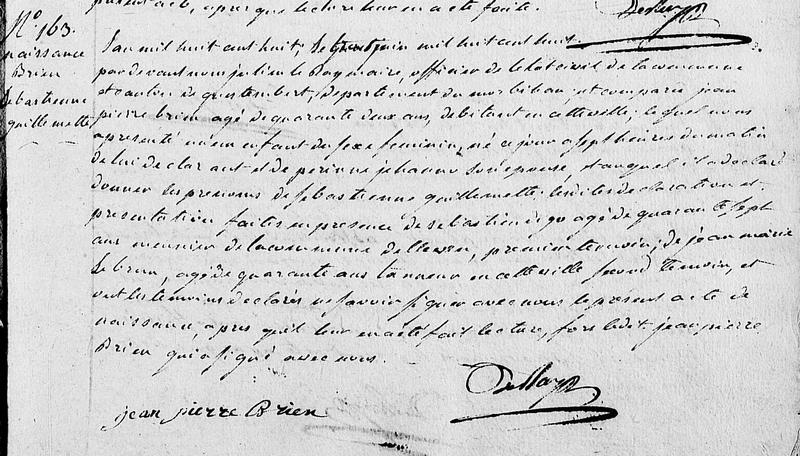 present acte, apres que lecture leur en a été faite.
N.o 163.
naissance
Brien
sebastienne
guillemette
L'an mil huit cent huit, le trente juin mil huit cent huit.
pardevant nous julien le Ray maire, officier de l'etat civil de la commune
et canton de questembert, departement du morbihan, est comparu jean
pierre brien agé de quarante deux ans, debitant en cette ville; lequel nous
a presenté un enfant du sexe feminin, né ce jour a sept heures du matin
de lui declarant et de perinne jehanno son epouse, et auquel il a declaré
donner les prenoms de sebastienne guillemette; lesdites declaration et
presentation faites en presence de sebastien agé de quarante sept
ans meunier de la commune de premier temoin, de jean marie
le brun, agé de quarante ans tanneur en cette ville second temoin, et
ont les temoins declarés ne savoir signer avec nous le present acte de
naissance, apres qu'il leur en a été fait lecture, fors ledit jean pierre
Brien qui a signé avec nous.
jean pierre Brien